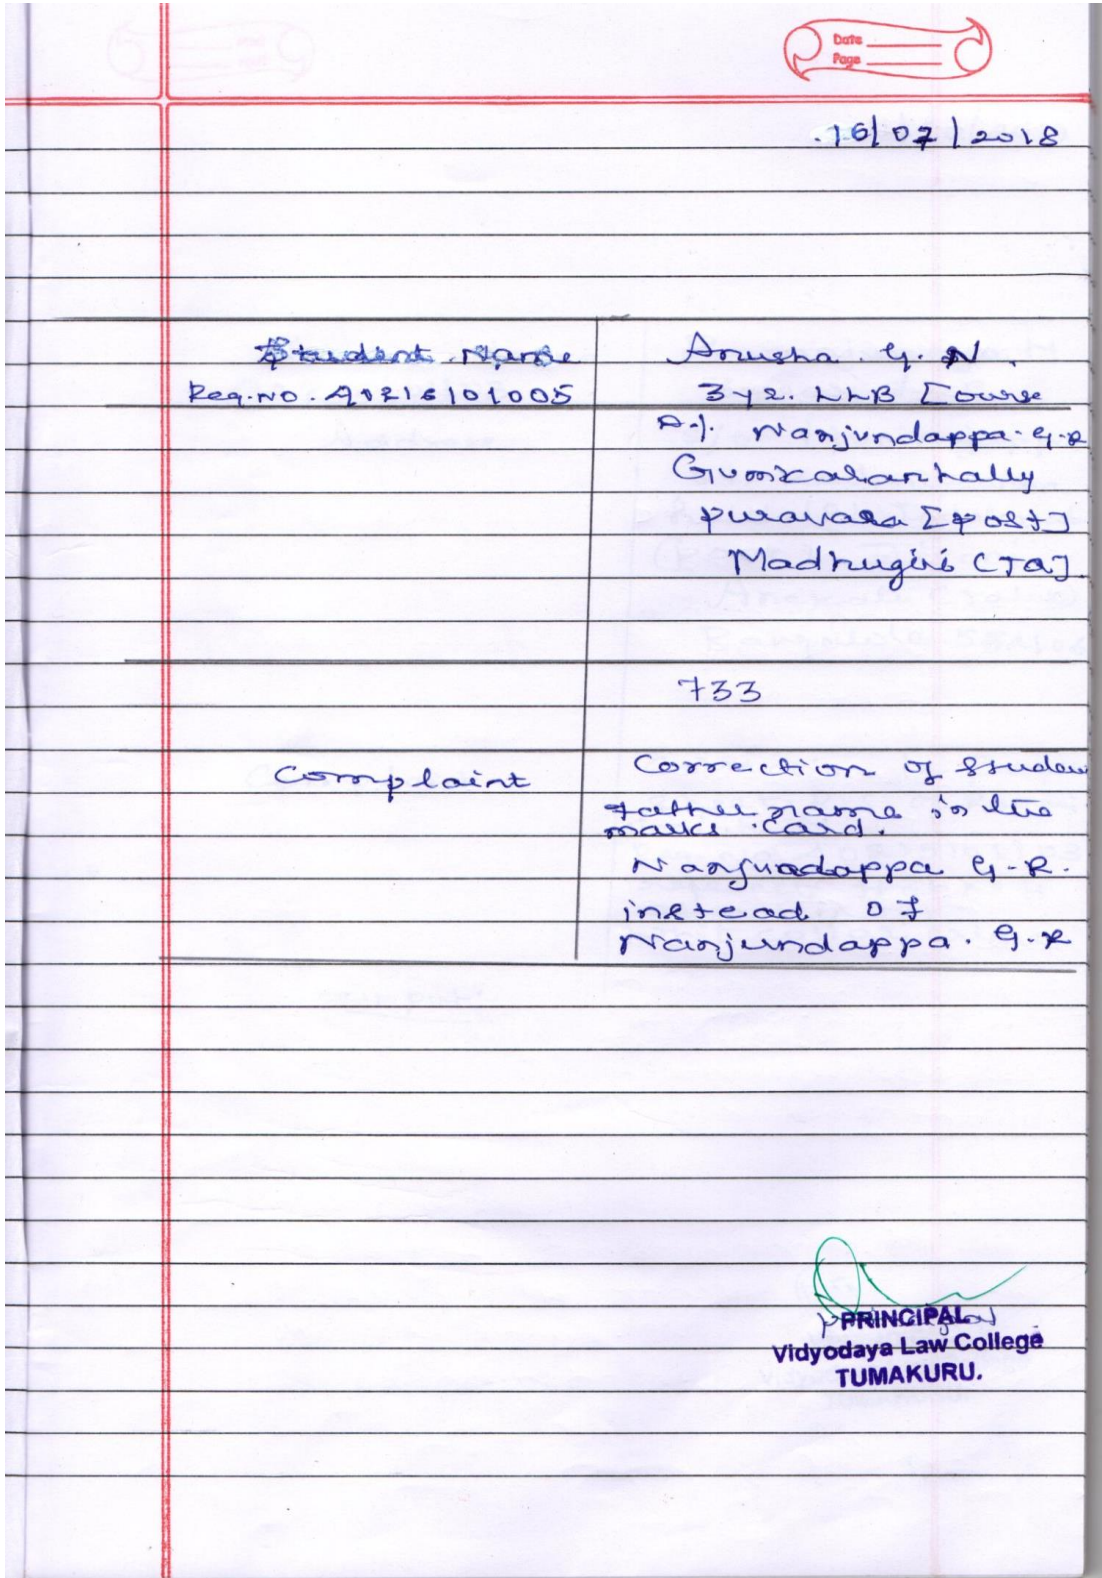 Date
Page
16/07/2018
Student Name
Anusha G. N.
Reg.No. A0216101005
3 yr. LLB Course
Nanjundappa. G.R
puravara [post]
Madhugiri [Ta]
733
Complaint
Correction of Studen
father name in the
marks card.
Nanjuadappa G.R.
instead of
Nanjundappa. G.R
PRINCIPAL
Vidyodaya Law College
TUMAKURU.